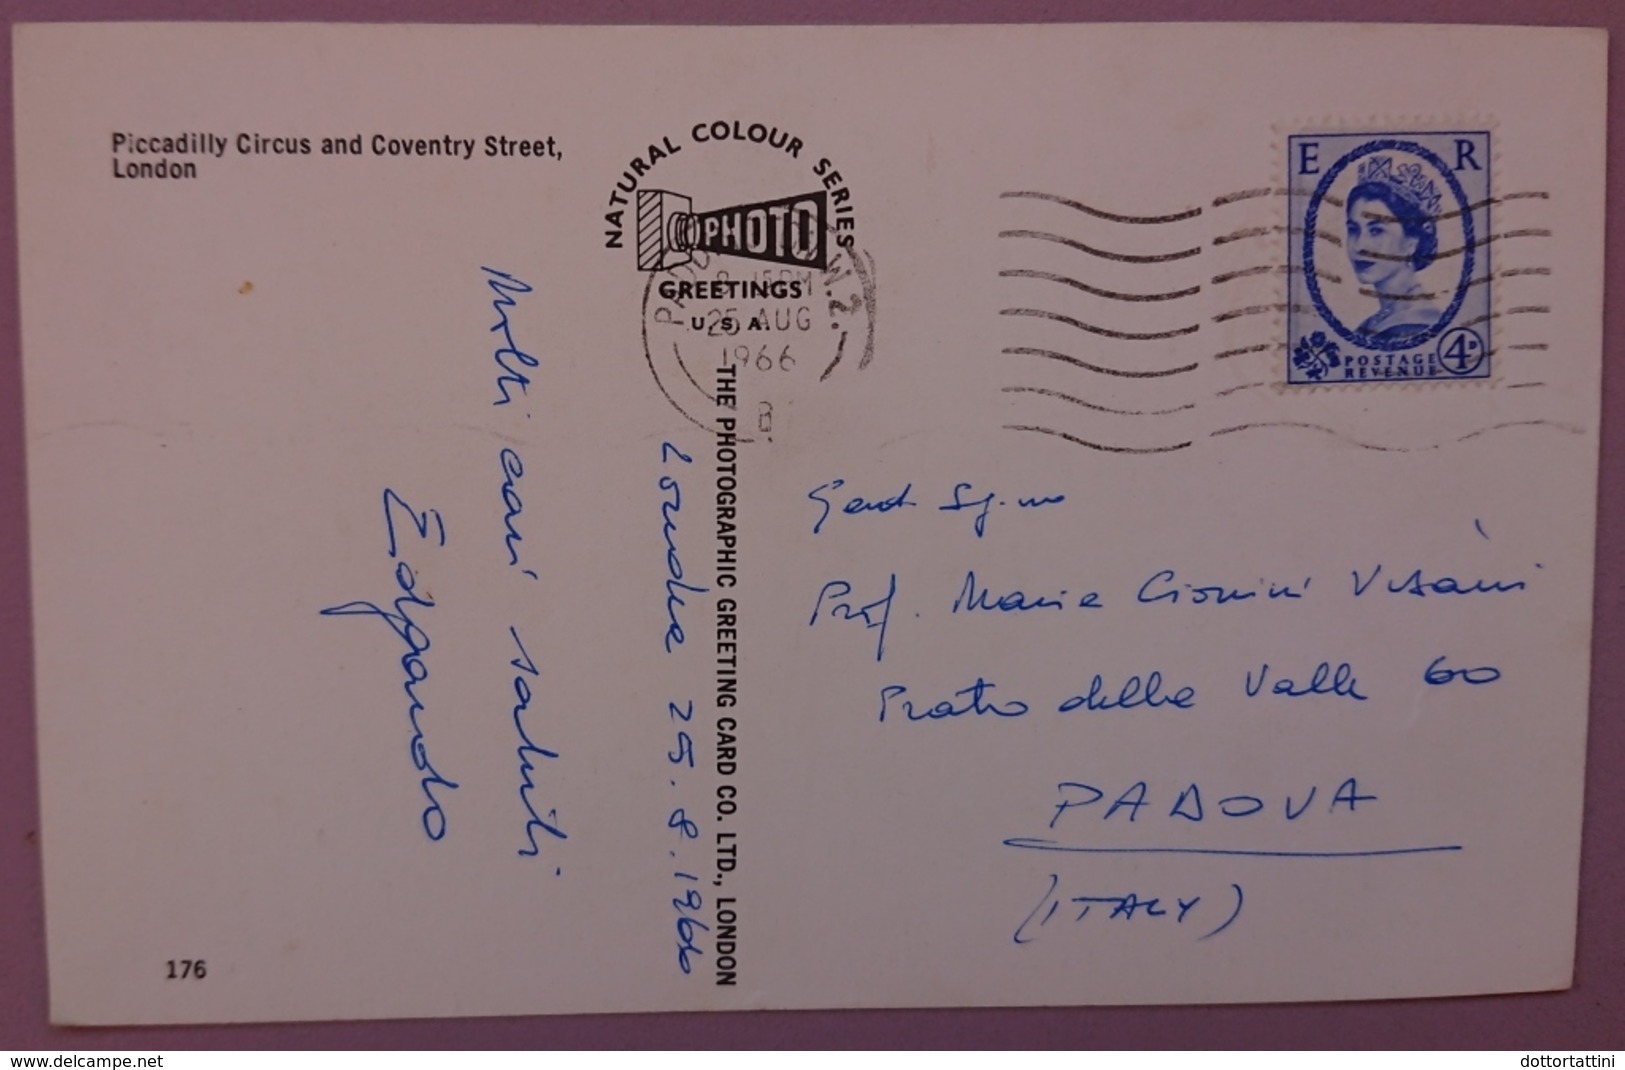 Piccadilly Circus and Coventry Street,
London
NATURAL COLOUR SERIES
PHOTO
GREETINGS
U S A
THE PHOTOGRAPHIC GREETING CARD CO. LTD., LONDON
PADD W.2.
8 15PM
25 AUG
1966
B
E R
POSTAGE
REVENUE
4D
Molti cari saluti
Edgardo
Londra 25.8.1966
Prof. Maria Visani
Prato della Valle 60
PADOVA
(ITALY)
176
www.delcampe.net
dottortattini